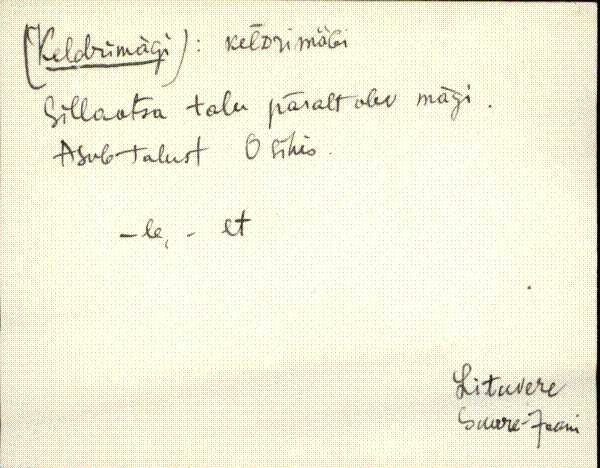 (Keldrimägi): keldrimägi
Sillaotsa talu päralt olev mägi.
Asub talust O sihis.
-le, - et
Lituvere
Suure-Jaani